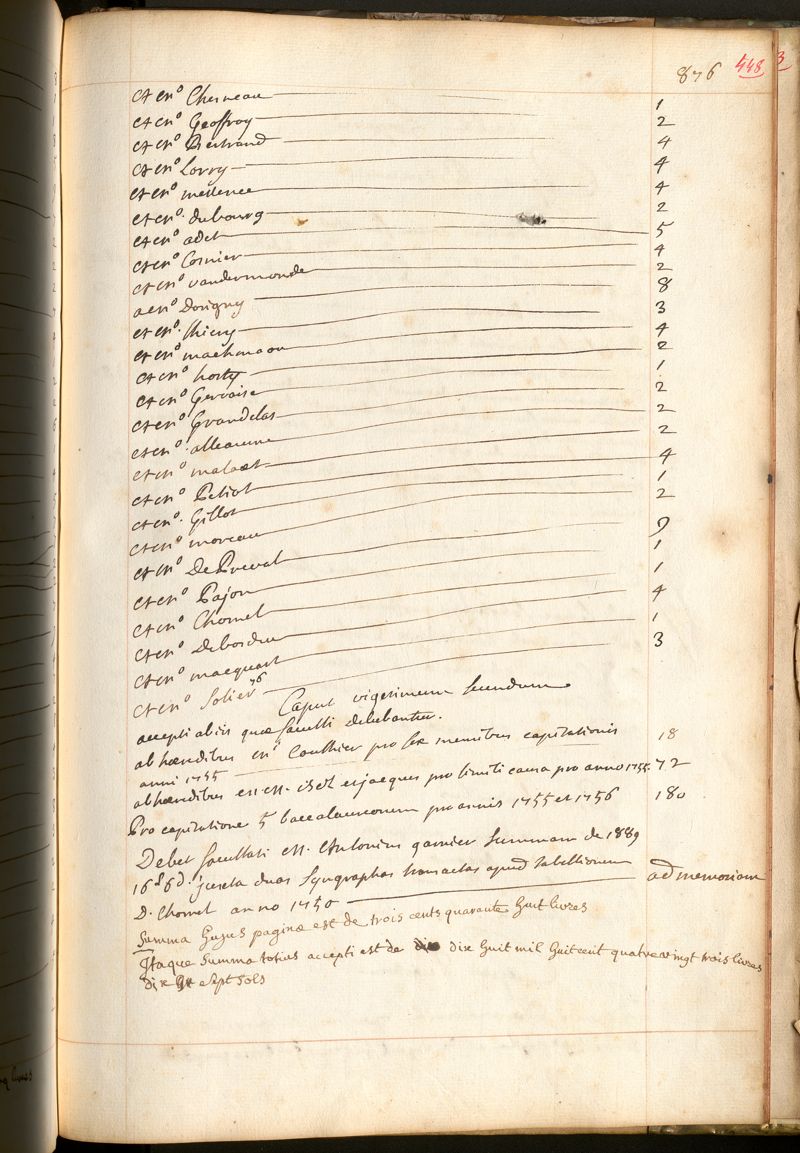 876 448
et m.o Chesneau 1
et m.o Geoffroy 2
et m.o Bertrand 4
et m.o Lorry 4
et m.o mellence 4
et m.o dubourg 2
et m.o adet 5
et m.o Cosnier 4
et m.o vandermonde 2
a m.o Dorigny 8
et m.o thiery 3
et m.o machmaou 4
et m.o hosty 2
et m.o Gervaise 1
et m.o Grandclas 2
et m.o alleaume 2
et m.o malaet 2
et m.o Petiot 4
et m.o Gillot 1
et m.o moreau 2
et m.o De Preval 9
et m.o Pajon 1
et m.o Chomel 1
et m.o Debordeu 4
et m.o macquart 1
et m.o Solier 3
Caput vigesimum secundum
accepti ab iis quæ facultati debebantur.
ab hæredibus m.i Cauthier pro sex mensibus capitationis
anni 1755 18
ab hæredibus et ejacques pro simili causa pro anno 1755 72
Pro capitatione 5 baccalaureorum pro annis 1755 et 1756 180
Debet facultati M. Antonius garnier summam de 1889
16s 6d. juxta duas Syngraphas transactas apud tabellionem
D. Chomel anno 1750 ad memoriam
Summa hujus paginæ est de trois cents quarante huit livres
Itaque Summa totius accepti est de dix huit mil huit cent quatre vingt trois livres
dix sept sols